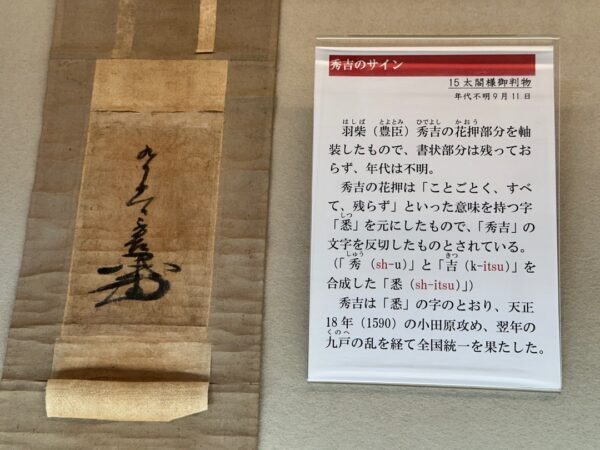 秀吉のサイン
15 太閤様御判物
年代不明9月11日
羽柴（豊臣）秀吉の花押部分を軸
はしば とよとみ ひでよし かおう
装したもので、書状部分は残ってお
らず、年代は不明。
秀吉の花押は「ことごとく、すべ
て、残らず」といった意味を持つ字
「悉」を元にしたもので、「秀吉」の
しつ
文字を反切したものとされている。
（「秀（sh-u）」と「吉（k-itsu）」を
しゅう きつ
合成した「悉（sh-itsu）」）
秀吉は「悉」の字のとおり、天正
18年（1590）の小田原攻め、翌年の
九戸の乱を経て全国統一を果たした。
くのへ